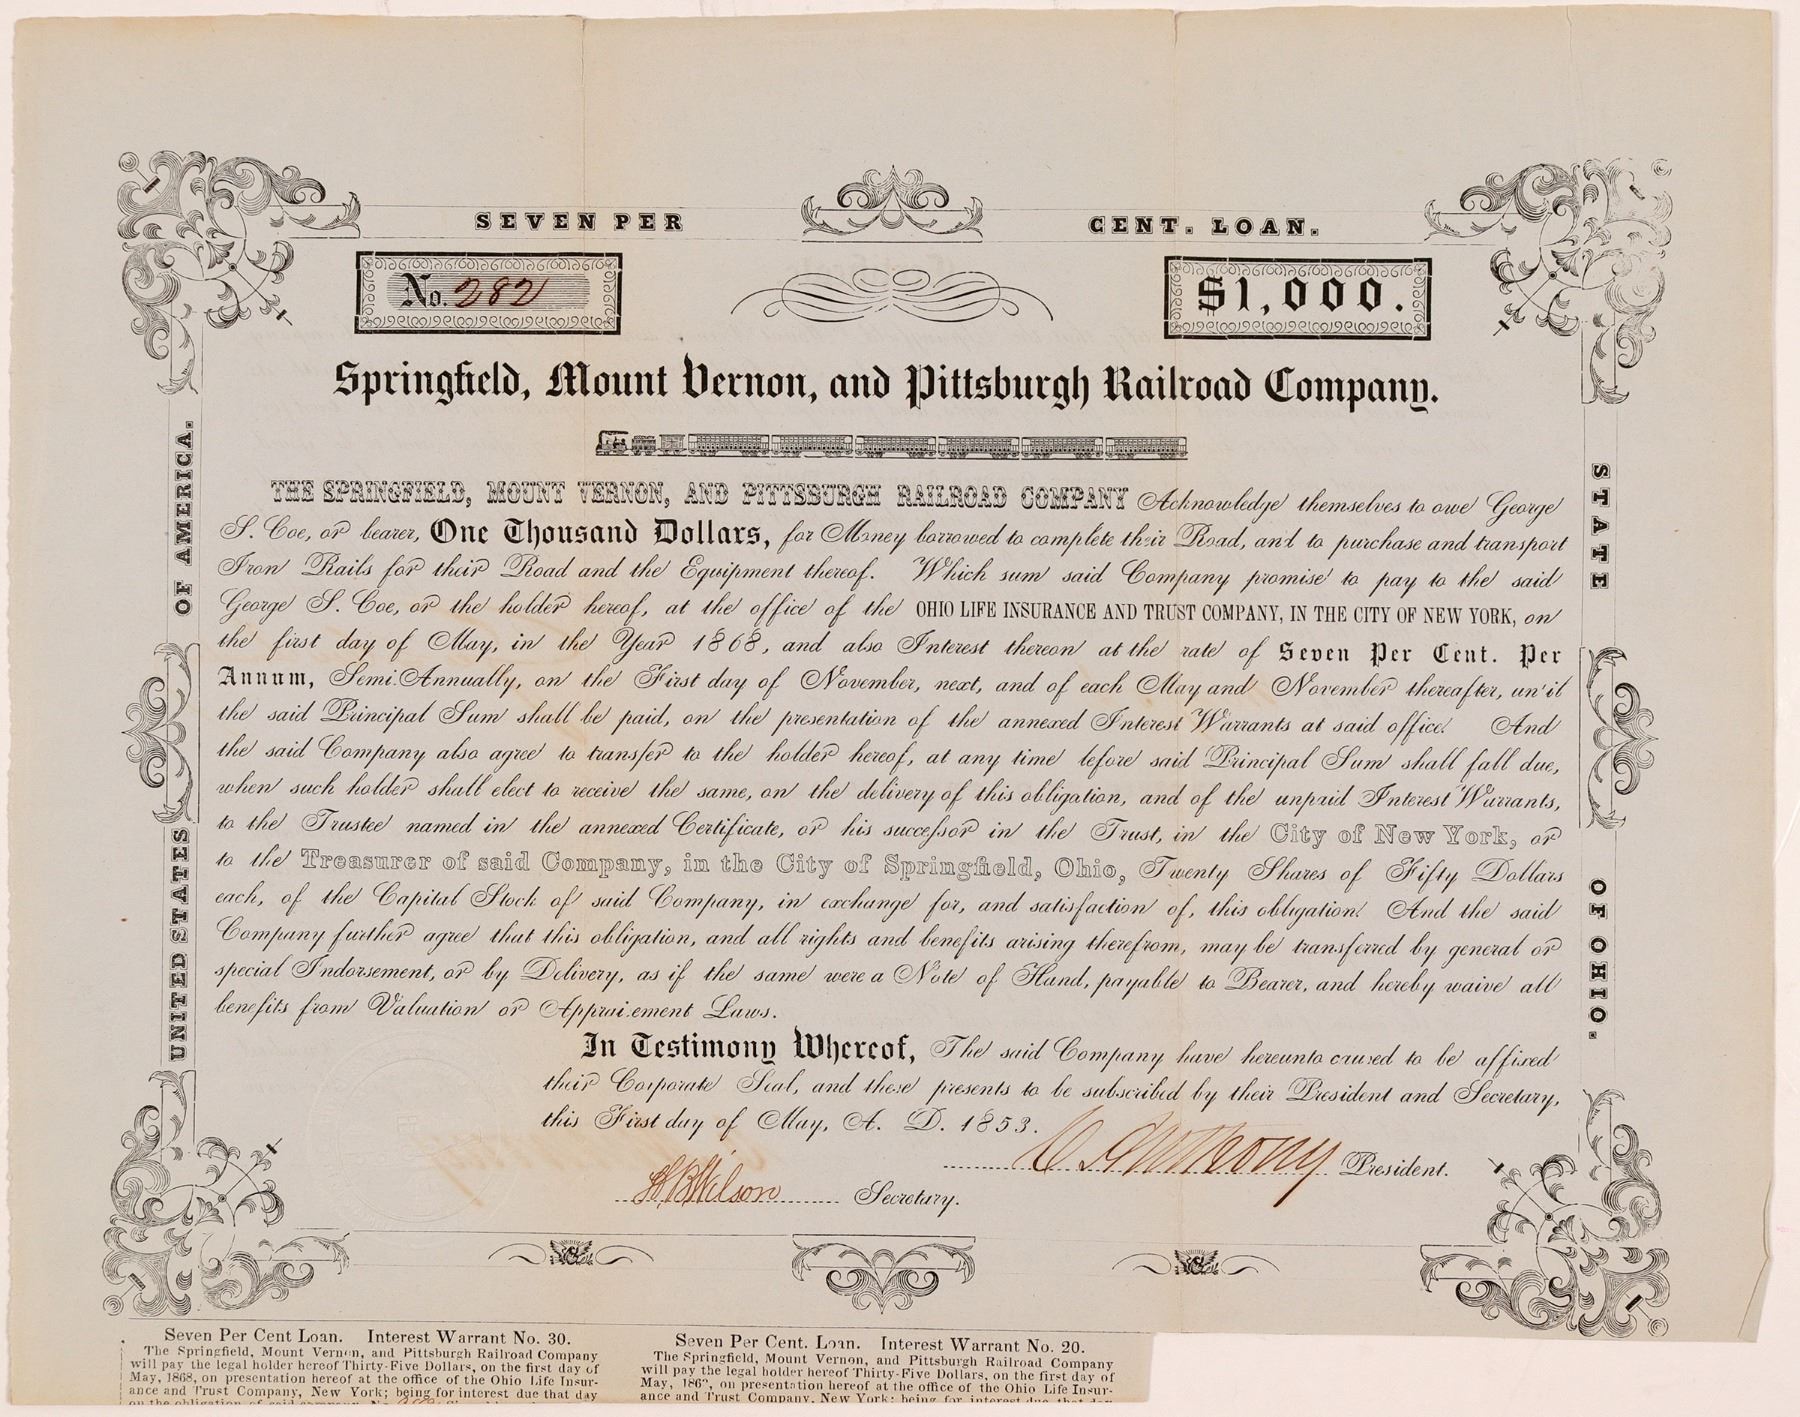 SEVEN PER CENT. LOAN.
No. 282
$1,000.
Springfield, Mount Vernon, and Pittsburgh Railroad Company.
THE SPRINGFIELD, MOUNT VERNON, AND PITTSBURGH RAILROAD COMPANY Acknowledge themselves to owe George
S. Coe, or bearer, One Thousand Dollars, for Money borrowed to complete their Road, and to purchase and transport
Iron Rails for their Road and the Equipment thereof. Which sum said Company promise to pay to the said
George S. Coe, or the holder hereof, at the office of the OHIO LIFE INSURANCE AND TRUST COMPANY, IN THE CITY OF NEW YORK, on
the first day of May, in the Year 1868, and also Interest thereon at the rate of Seven Per Cent. Per
Annum, Semi-Annually, on the First day of November, next, and of each May and November thereafter, until
the said Principal Sum shall be paid, on the presentation of the annexed Interest Warrants at said office. And
the said Company also agree to transfer to the holder hereof, at any time before said Principal Sum shall fall due,
when such holder shall elect to receive the same, on the delivery of this obligation, and of the unpaid Interest Warrants,
to the Trustee named in the annexed Certificate, or his successor in the Trust, in the City of New York, or
to the Treasurer of said Company, in the City of Springfield, Ohio, Twenty Shares of Fifty Dollars
each, of the Capital Stock of said Company, in exchange for, and satisfaction of, this obligation. And the said
Company further agree that this obligation, and all rights and benefits arising therefrom, may be transferred by general or
special Indorsement, or by Delivery, as if the same were a Note of Hand, payable to Bearer, and hereby waive all
benefits from Valuation or Appraisement Laws.
In Testimony Whereof, The said Company have hereunto caused to be affixed
their Corporate Seal, and these presents to be subscribed by their President and Secretary,
this First day of May, A. D. 1853.
C Anthony President.
H B Wilson Secretary.
UNITED STATES OF AMERICA.
STATE OF OHIO.
Seven Per Cent Loan. Interest Warrant No. 30.
The Springfield, Mount Vernon, and Pittsburgh Railroad Company
will pay the legal holder hereof Thirty-Five Dollars, on the first day of
May, 1868, on presentation hereof at the office of the Ohio Life Insur-
ance and Trust Company, New York; being for interest due that day
on the obligation of said company, No. 282
Seven Per Cent. Loan. Interest Warrant No. 20.
The Springfield, Mount Vernon, and Pittsburgh Railroad Company
will pay the legal holder hereof Thirty-Five Dollars, on the first day of
May, 186, on presentation hereof at the office of the Ohio Life Insur-
ance and Trust Company, New York; being for interest due that day